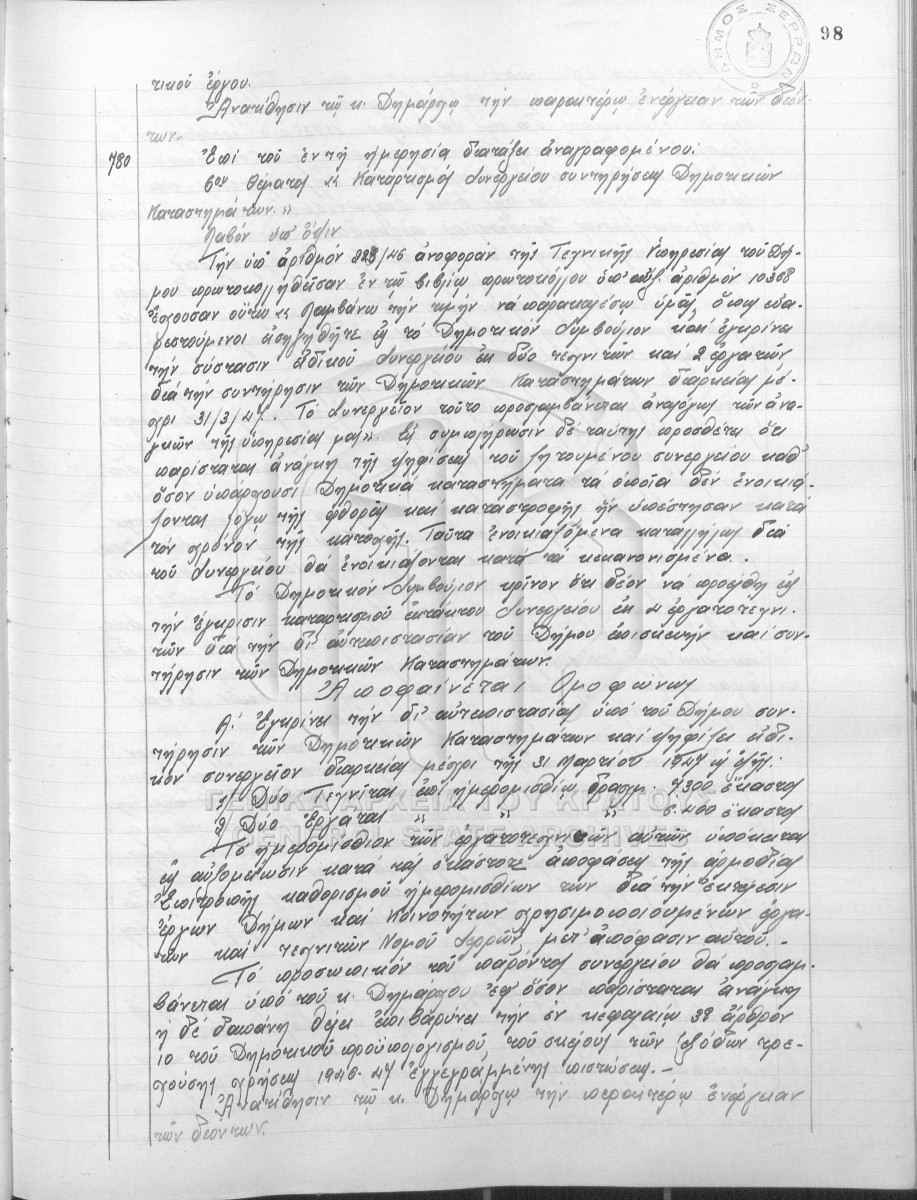 98
ΔΗΜΟΣ ΣΕΡΡΩΝ
τικοῦ ἔργου.
Ἀνατίθησιν τῷ κ. Δημάρχῳ τήν παρακτέρω ἐνέργειαν τῶν δεόν-
των.
780 Ἐπί τοῦ ἐν τῇ ἡμερησίᾳ διατάξει ἀναγραφομένου:
6ου θέματος "Καταρτισμός Συνεργείου συντηρήσεως Δημοτικῶν
Καταστημάτων."
Λαβόν ὑπ' ὄψιν
Τήν ὑπ' ἀριθμόν 223/46 ἀναφοράν τῆς Τεχνικῆς Ὑπηρεσίας τοῦ Δή-
μου πρωτοκολληθεῖσαν ἐν τῷ βιβλίῳ πρωτοκόλλου ὑπ' αὔξ. ἀριθμόν 10368
ἔχουσαν οὕτω "Λαμβάνω τήν τιμήν νά παρακαλέσω ὑμᾶς, ὅπως εὐα-
ρεστούμενοι εἰσηγηθῆτε εἰς τό Δημοτικόν Συμβούλιον καί ἐγκρίνει
τήν σύστασιν εἰδικοῦ Συνεργείου ἐκ δύο τεχνιτῶν καί 2 ἐργατῶν
διά τήν συντήρησιν τῶν Δημοτικῶν Καταστημάτων διαρκείας μέ-
χρι 31/3/47. Τό Συνεργεῖον τοῦτο προσλαμβάνεται ἀναλόγως τῶν ἀνα-
γκῶν τῆς ὑπηρεσίας μας". Εἰς συμπλήρωσιν δέ ταύτης προσθέτει ὅτι
παρίσταται ἀνάγκη τῆς ψηφίσεως τοῦ ζητουμένου συνεργείου καθ'
ὅσον ὑπάρχουσι Δημοτικά καταστήματα τά ὁποῖα δέν ἐνοικιά-
ζονται λόγῳ τῆς φθορᾶς καί καταστροφῆς ἥν ὑπέστησαν κατά
τόν χρόνον τῆς κατοχῆς. Ταῦτα ἐνοικιαζόμενα καταλλήλως διά
τοῦ Συνεργείου θά ἐνοικιάζονται κατά τά κεκανονισμένα.
Τό Δημοτικόν Συμβούλιον κρῖνον ὅτι δέον νά προέλθῃ εἰς
τήν ἔγκρισιν καταρτισμοῦ ἐκτάκτου Συνεργείου ἐκ 4 ἐργατοτεχνι-
τῶν διά τήν δι' αὐτεπιστασίαν τοῦ Δήμου ἐπισκευήν καί συν-
τήρησιν τῶν Δημοτικῶν Καταστημάτων.
Ἀποφαίνεται Ὁμοφώνως
Α! Ἐγκρίνει τήν δι' αὐτεπιστασίας ὑπό τοῦ Δήμου συν-
τήρησιν τῶν Δημοτικῶν Καταστημάτων καί ψηφίζει εἰδι-
κόν συνεργεῖον διαρκείας μέχρι τῆς 31 Μαρτίου 1947 ὡς ἑξῆς:
1/ Δύο Τεχνίται ἐπί ἡμερομισθίῳ δραχμ. 7300 ἕκαστος
2/ Δύο Ἐργάται " " " 6.200 ἕκαστος
Τό ἡμερομίσθιον τῶν ἐργατοτεχνιτῶν αὐτῶν ὑπόκειται
εἰς αὐξομείωσιν κατά τάς ἑκάστοτε ἀποφάσεις τῆς ἁρμοδίας
Ἐπιτροπῆς καθορισμοῦ ἡμερομισθίων τῶν διά τήν ἐκτέλεσιν
ἔργων Δήμων καί Κοινοτήτων χρησιμοποιουμένων ἐργα-
τῶν καί τεχνιτῶν Νομοῦ Σερρῶν, μετ' ἀπόφασιν αὐτοῦ.-
Τό προσωπικόν τοῦ παρόντος συνεργείου θά προσλαμ-
βάνεται ὑπό τοῦ κ. Δημάρχου ἐφ' ὅσον παρίσταται ἀνάγκη
ἡ δέ δαπάνη θέλει ἐπιβαρύνει τήν ἐν κεφαλαίῳ 38 ἄρθρον
10 τοῦ Δημοτικοῦ προϋπολογισμοῦ, τοῦ σκέλους τῶν ἐξόδων τρε-
χούσης χρήσεως 1946-47 ἐγγεγραμμένης πιστώσεως.-
Ἀνατίθησιν τῷ κ. Δημάρχῳ τήν περαιτέρω ἐνέργειαν
τῶν δεόντων.
ΓΕΝΙΚΑ ΑΡΧΕΙΑ ΤΟΥ ΚΡΑΤΟΥΣ
GENERAL STATE ARCHIVES